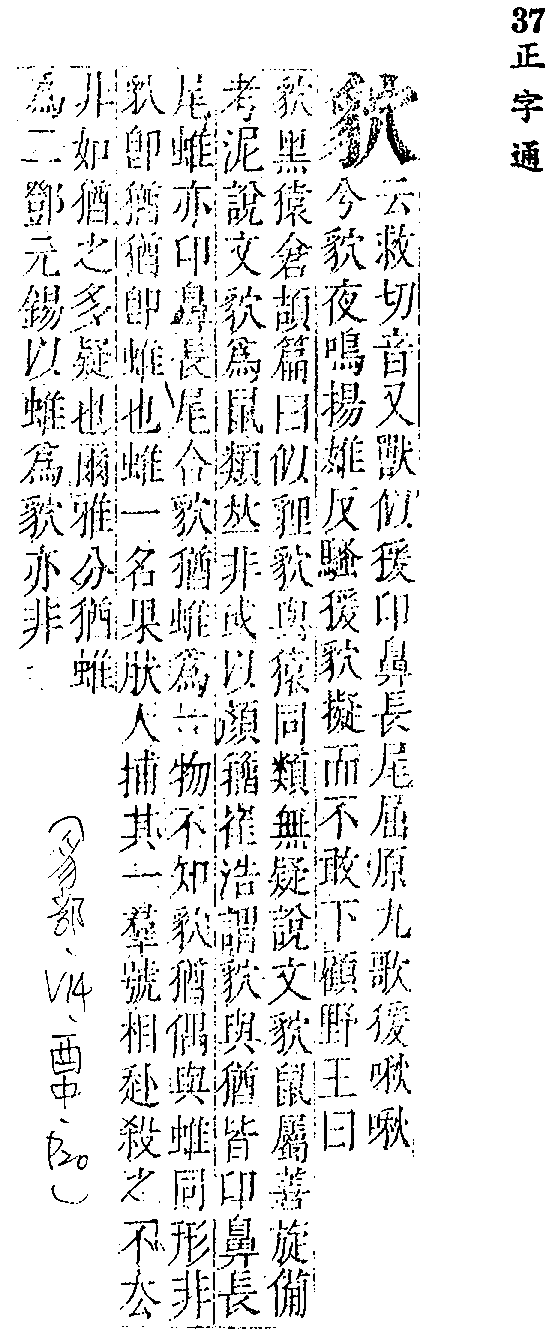 37 正字通
貁 云救切音又獸似猨印鼻長尾屈原九歌猨啾啾
兮貁夜鳴揚雄反騷猨貁擬而不敢下顧野王曰
貁黑猿倉頡篇曰似貍貁與猿同類無疑說文貁鼠屬善旋備
考泥說文貁爲鼠類𠀤非或以顏籀崔浩謂貁與猶皆印鼻長
尾蜼亦印鼻長尾合貁猶蜼爲一物不知貁猶偶與蜼同形非
貁卽猶猶卽蜼也蜼一名果肰人捕其一羣號相赴殺之不厺
非如猶之多疑也爾雅分猶蜼
為二鄧元錫以蜼爲貁亦非
(豸部、V14、酉中、P20)